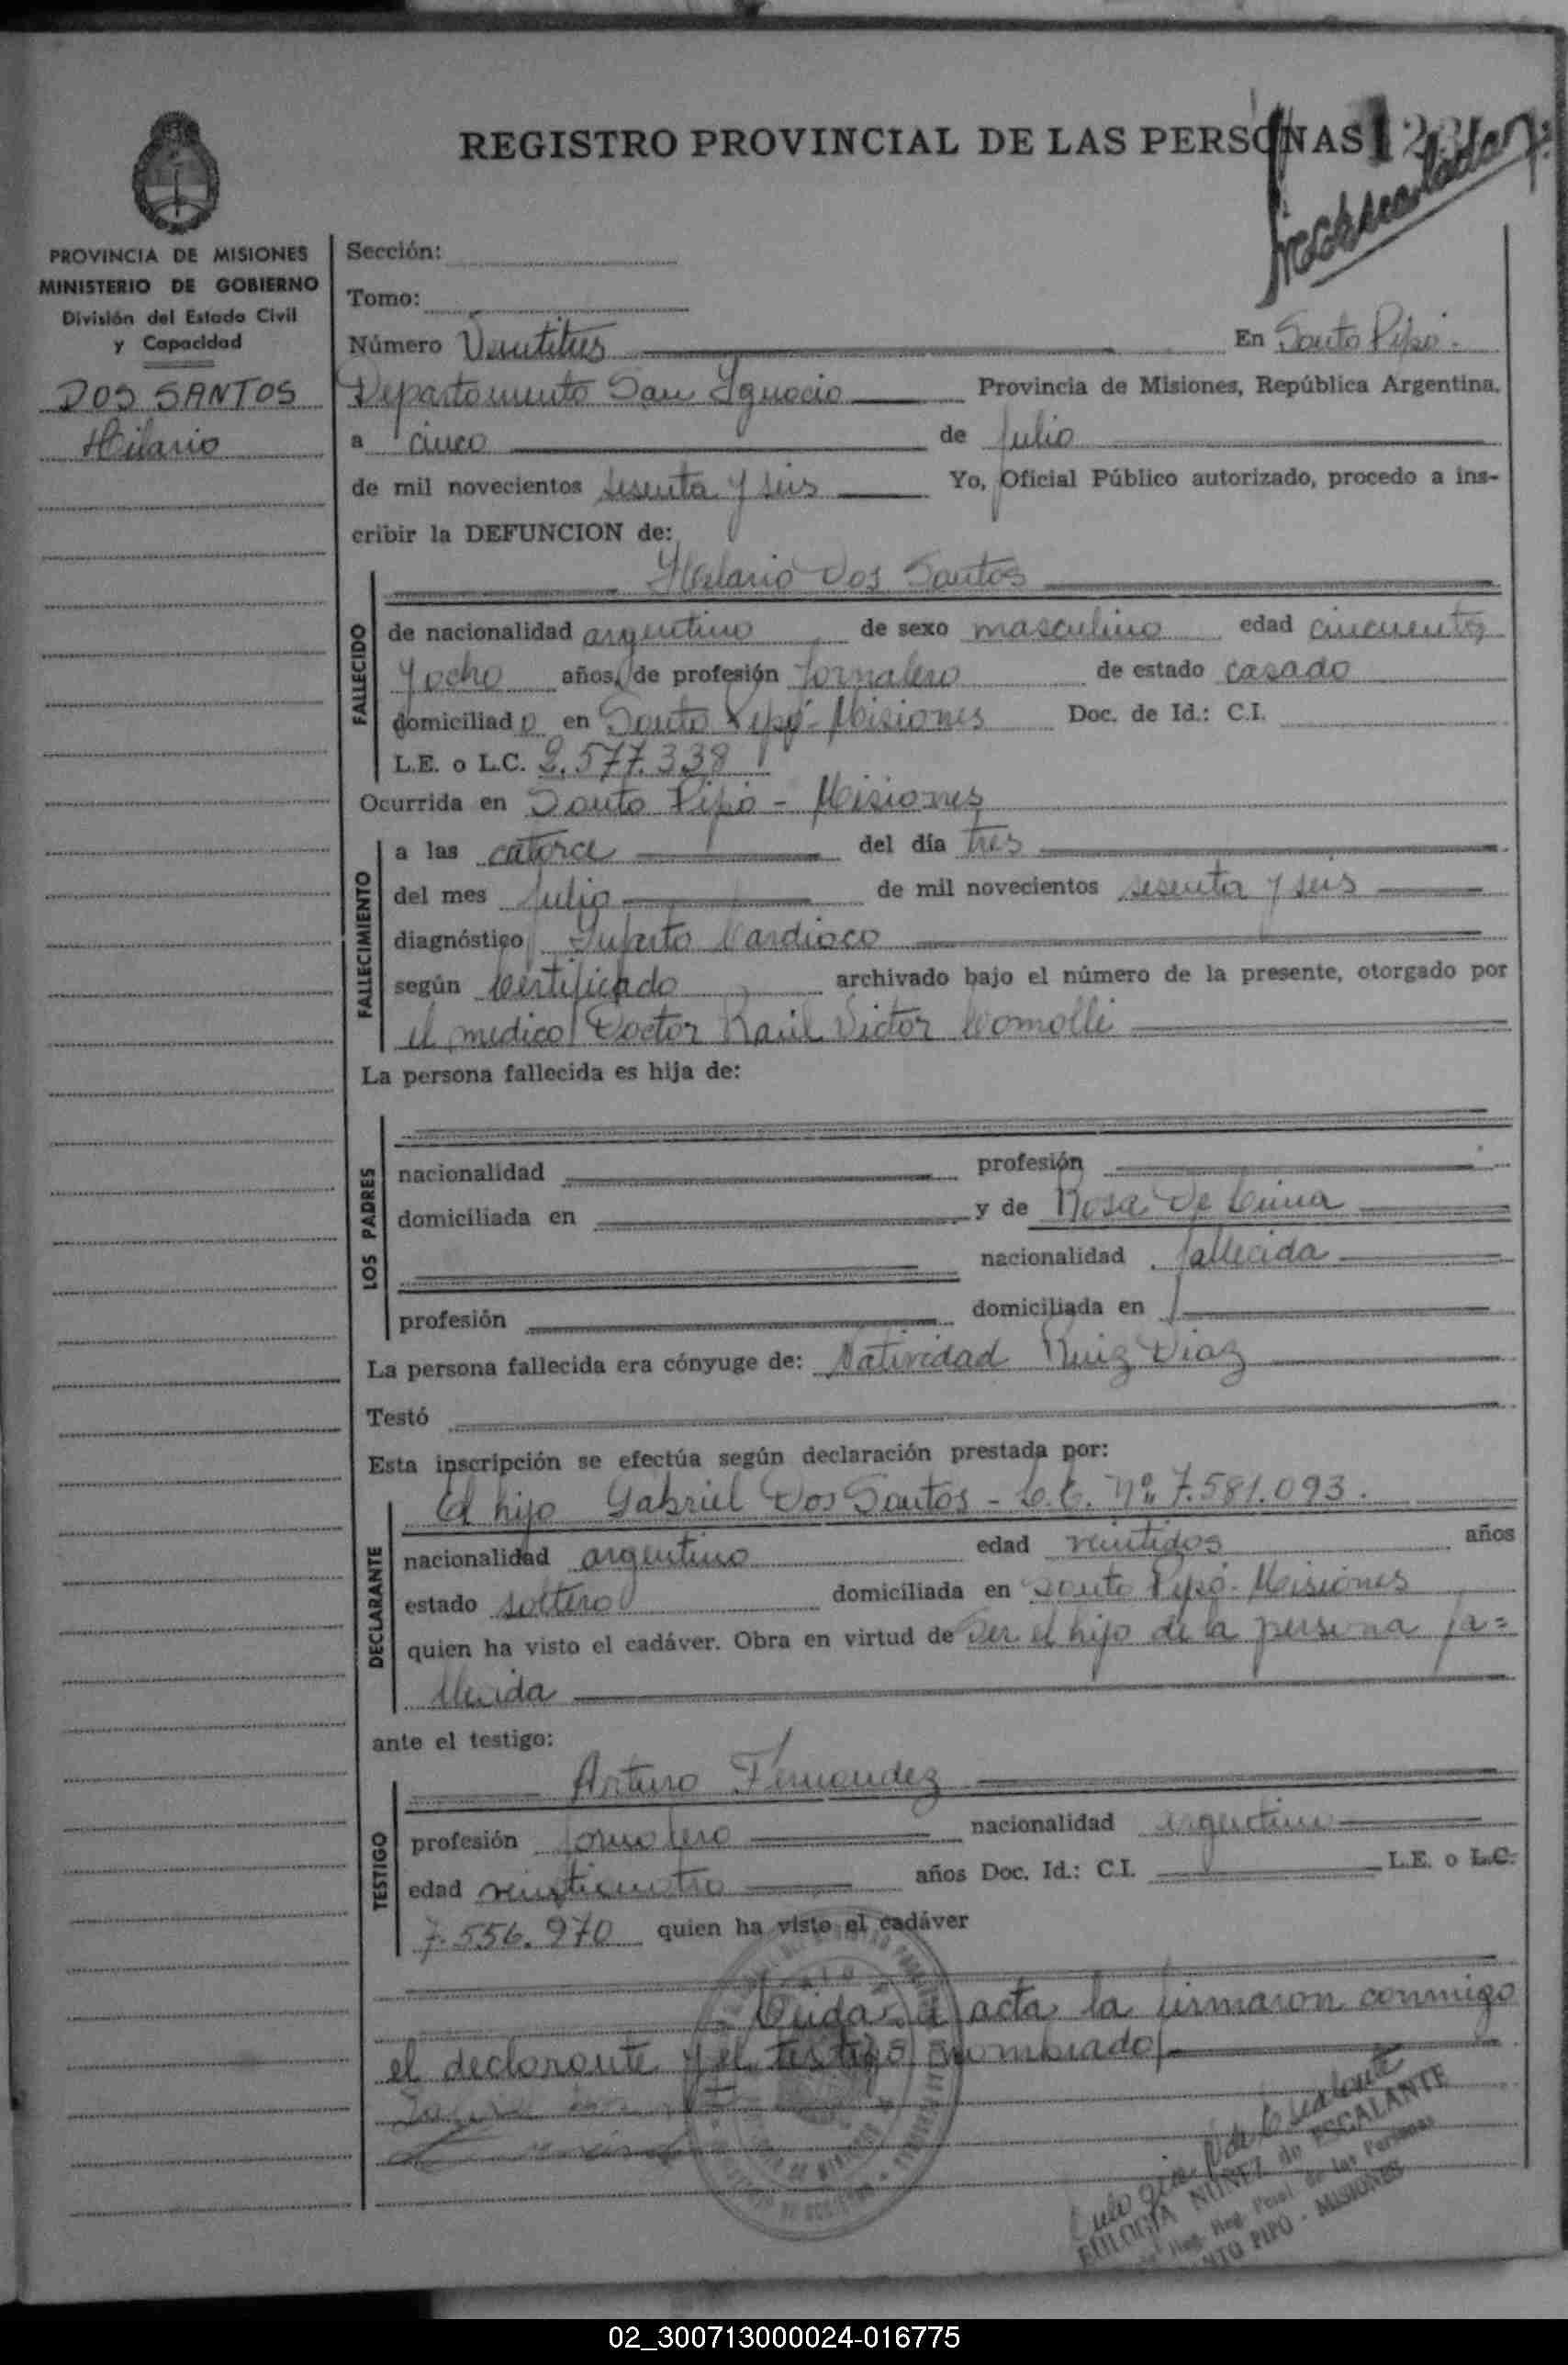 REGISTRO PROVINCIAL DE LAS PERSONAS
PROVINCIA DE MISIONES
MINISTERIO DE GOBIERNO
División del Estado Civil
y Capacidad
DOS SANTOS
Hilario
Sección:
Tomo:
Número Veintitres En Santo Pipó.
Departamento San Ignacio Provincia de Misiones, República Argentina,
a cinco de Julio
de mil novecientos sesenta y seis Yo, Oficial Público autorizado, procedo a ins-
cribir la DEFUNCION de:
Hilario Dos Santos
FALLECIDO
de nacionalidad argentino de sexo masculino edad cincuenta
y ocho años, de profesión Jornalero de estado casado
domiciliado en Santo Pipó - Misiones Doc. de Id.: C.I.
L.E. o L.C. 2.577.338
Ocurrida en Santo Pipó - Misiones
FALLECIMIENTO
a las catorce del día tres
del mes Julio de mil novecientos sesenta y seis
diagnóstico Infarto Cardiaco
según Certificado archivado bajo el número de la presente, otorgado por
el medico Doctor Raúl Victor Comolli
La persona fallecida es hija de:
LOS PADRES
nacionalidad profesión
domiciliada en y de Rosa De
nacionalidad fallecida
profesión domiciliada en
La persona fallecida era cónyuge de: Natividad Ruiz Diaz
Testó
Esta inscripción se efectúa según declaración prestada por:
DECLARANTE
El hijo Gabriel Dos Santos - Nº 7.581.093.
nacionalidad argentino edad veintidos años
estado soltero domiciliada en Santo Pipó - Misiones
quien ha visto el cadáver. Obra en virtud de Ser el hijo de la persona fa=
llecida
ante el testigo:
TESTIGO
Arturo Fernandez
profesión Jornalero nacionalidad argentino
edad veinticuatro años Doc. Id.: C.I. L.E. o L.C.
7.556.970 quien ha visto el cadáver
Leida el acta la firmaron conmigo
el declarante y el testigo nombrado
EULOGIA NUÑEZ de ESCALANTE
Reg. Prov. de las Personas
SANTO PIPO - MISIONES
02_300713000024-016775